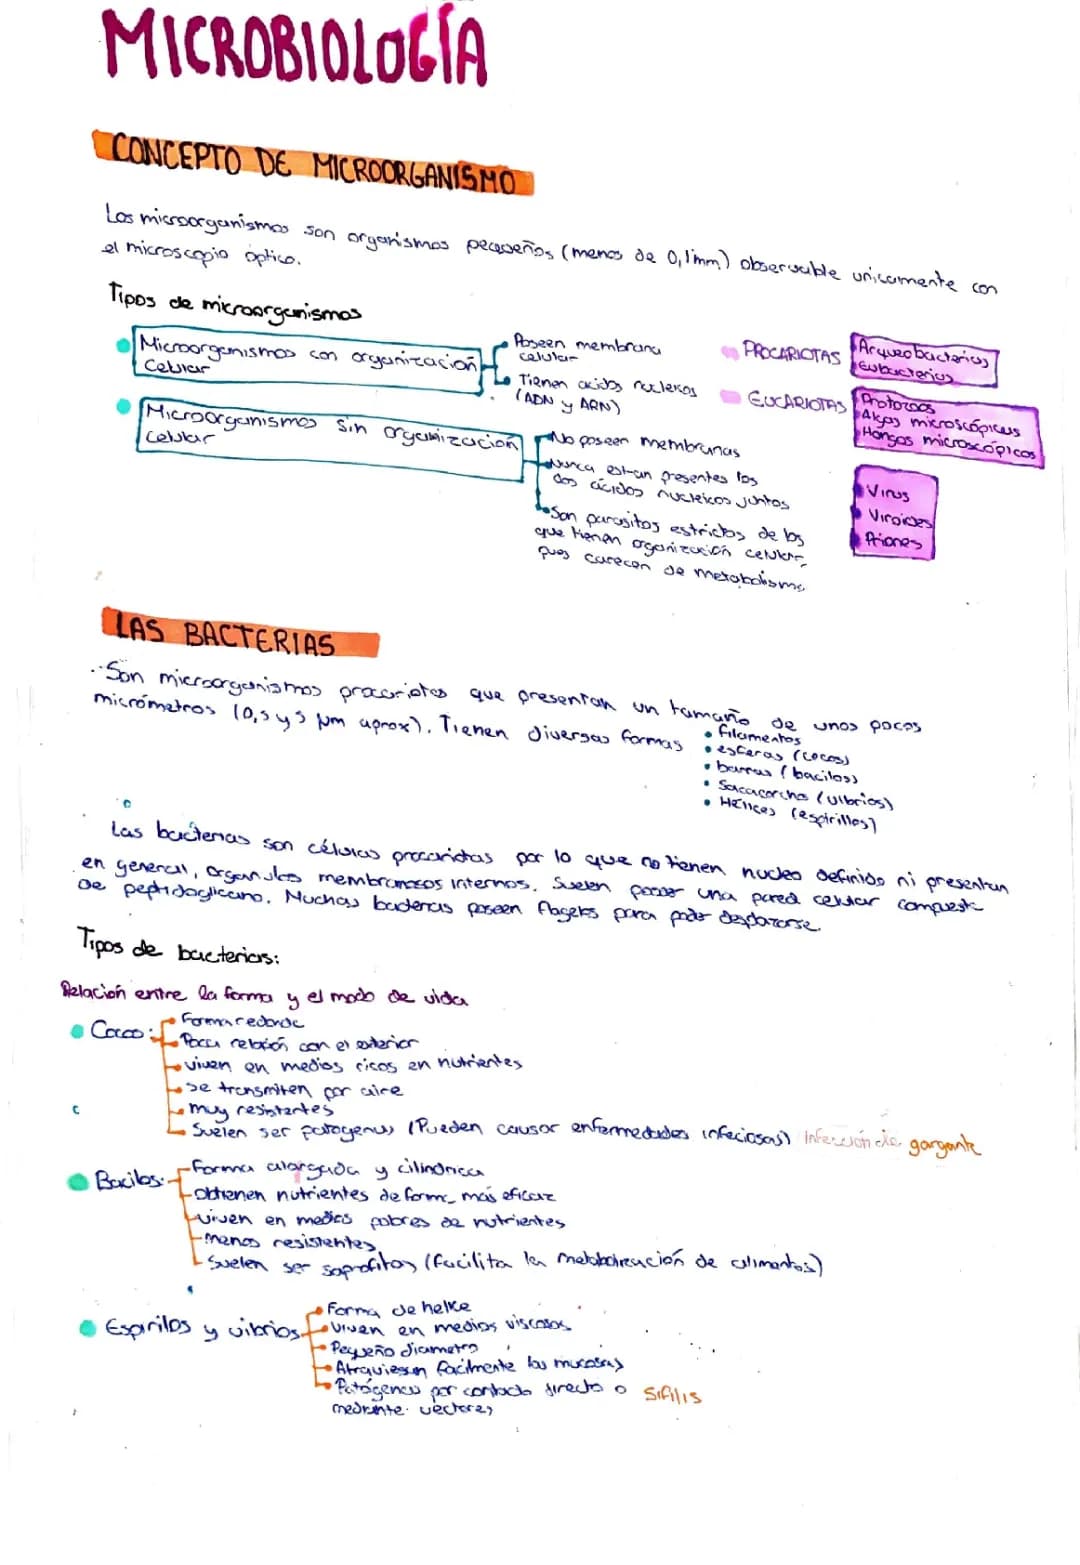 MICROBIOLOGÍA
CONCEPTO DE MICROORGANISMO
Los microorganismos son organismos pequeños (menos de 0,1mm) observable unicamente con
el microscopio óptico.
Tipos de microorganismos
Microorganismos con organización
Celular
Poseen membrana
celular
Tienen acidos nucleicos
(ADN y ARN)
PROCARIOTAS
Arqueobacterias
Eubacterias
EUCARIOTAS
Protozoos
Algas microscópicas
Hongos microscópicos
Microorganismos sin organización
celular
No poseen membranas
Nunca estan presentes los
dos ácidos nucleicos juntos
Son parasitos estrictos de los
que tienen organización celular,
pues carecen de metabolismo
Virus
Viroides
Priones
LAS BACTERIAS
Son microorganismos procariotas que presentan un tamaño de unos pocos
micrómetros (0,5 y 5 µm aprox). Tienen diversas formas
• filamentos
• esferas (cocos)
• barras (bacilos)
• Sacacorcho (vibrios)
• Hélices (espirillos)
Las bacterias son células procariotas por lo que no tienen nucleo definido ni presentan
en general, organulos membranosos internos. Suelen poseer una pared celular compuesta
de peptidoglicano. Muchas bacterias poseen flagelos para poder desplazarse
Tipos de bacterias:
Relación entre la forma y el modo de vida
Cocos:
Forma redonda
Poca relación con el exterior
viven en medios ricos en nutrientes
Se transmiten por aire
muy resistentes
Suelen ser patogenos (Pueden causar enfermedades infeciosas) Infección de garganta
Bacilos:
Forma alargada y cilindrica
Obtienen nutrientes de forma más eficaz
viven en medios pobres de nutrientes
menos resistentes
Suelen ser saprofitos (facilita la metabolización de alimentos)
Espirilos y vibrios
Forma de helice
viven en medios viscosos
Pequeño diametro
Atraviesan facilmente las mucosas
Patógenos por contacto directo o
mediante vectores
Sífilis